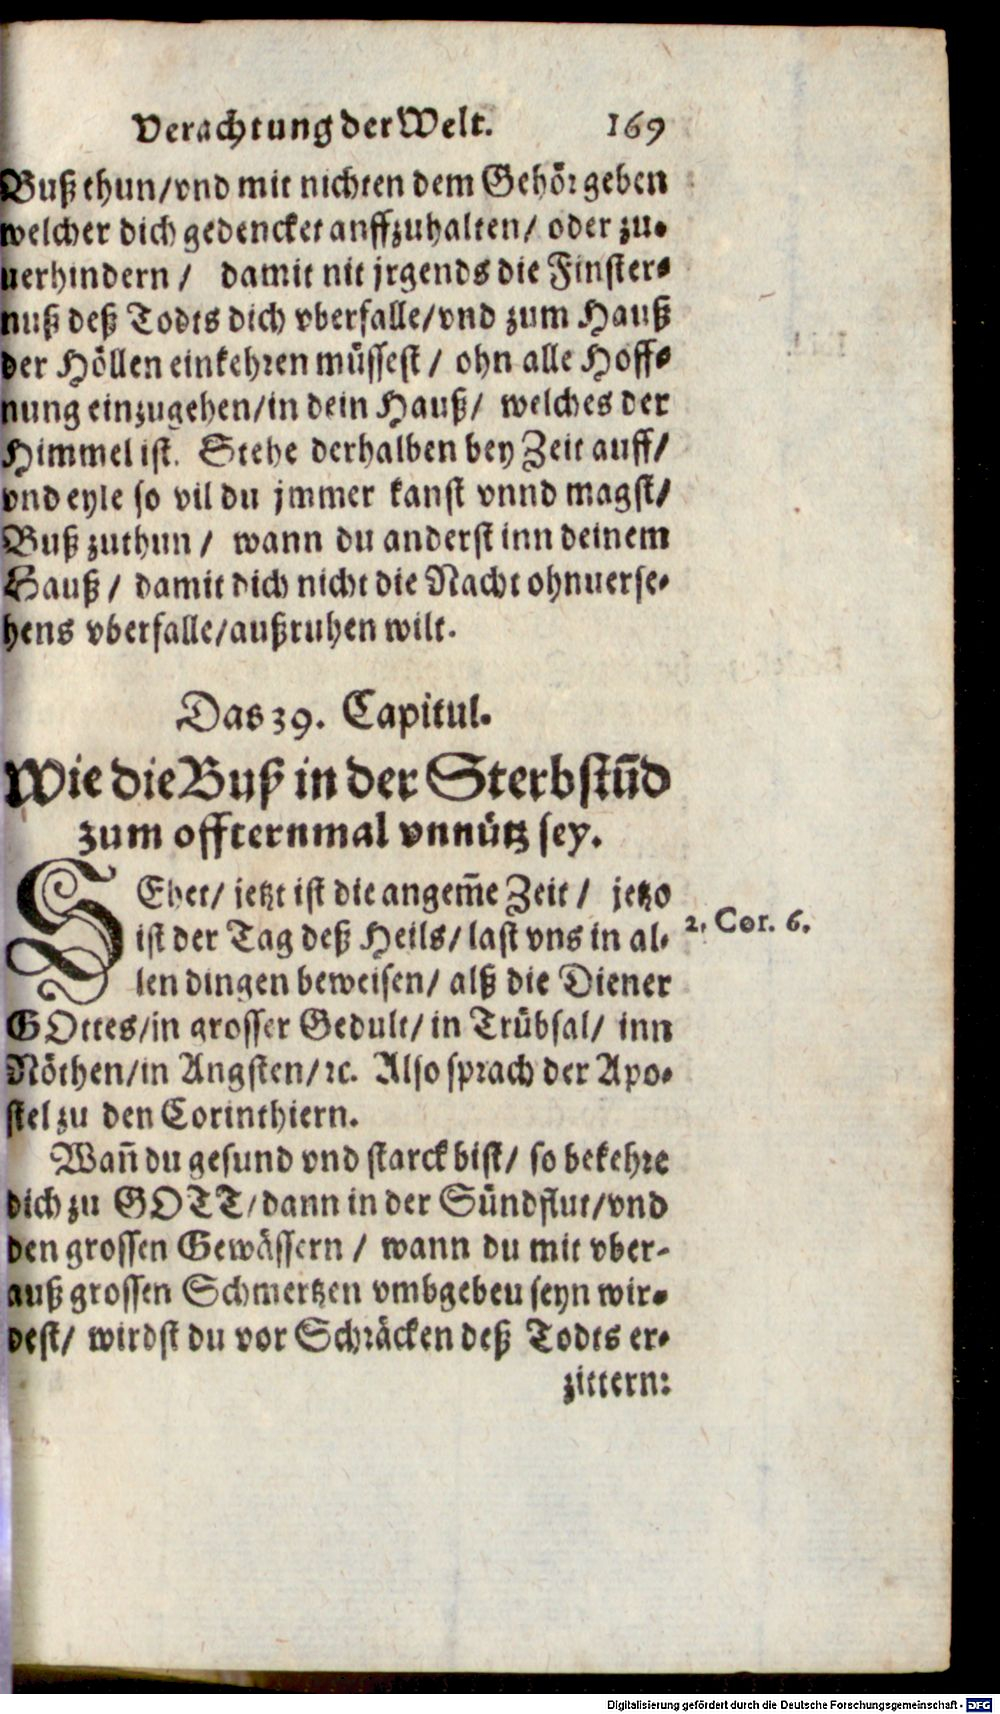 Verachtung der Welt. 169
Buß thun/vnd mit nichten dem Gehör geben
welcher dich gedencket auffzuhalten/ oder zu-
uerhindern / damit nit jrgends die Finster-
nuß deß Todts dich vberfalle/vnd zum Hauß
der Höllen einkehren müssest / ohn alle Hoff-
nung einzugehen/in dein Hauß/ welches der
Himmel ist. Stehe derhalben bey Zeit auff/
vnd eyle so vil du jmmer kanst vnnd magst/
Buß zuthun / wann du anderst inn deinem
Hauß / damit dich nicht die Nacht ohnuerse-
hens vberfalle/außruhen wilt.
Das 39. Capitul.
Wie die Buß in der Sterbstūd
zum offternmal vnnütz sey.
SEhet/ jetzt ist die angem̃e Zeit / jetzo
ist der Tag deß Heils/ last vns in al-
len dingen beweisen/ alß die Diener
GOttes/in grosser Gedult/ in Trübsal/ inn
Nöthen/in Angsten/ꝛc. Also sprach der Apo-
stel zu den Corinthiern.
2. Cor. 6.
Wañ du gesund vnd starck bist/ so bekehre
dich zu GOTT/dann in der Sündflut/vnd
den grossen Gewässern / wann du mit vber-
auß grossen Schmertzen vmbgebeu seyn wir-
dest/ wirdst du vor Schräcken deß Todts er-
zittern:
Digitalisierung gefördert durch die Deutsche Forschungsgemeinschaft - DFG